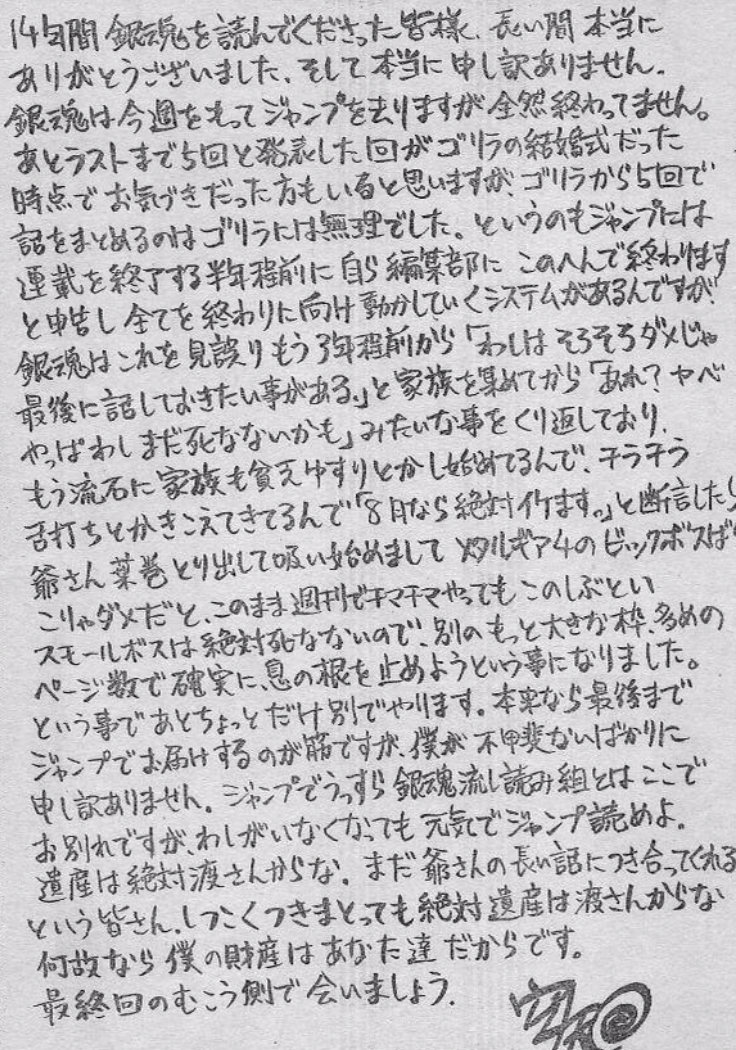 14年間 銀魂を読んでくださった皆様、長い間 本当に
ありがとうございました、そして本当に申し訳ありません。
銀魂は今週をもってジャンプを去りますが全然終わってません。
あとラストまで5回と発表した回がゴリラの結婚式だった
時点でお気づきだった方もいると思いますが、ゴリラから5回で
話をまとめるのはゴリラには無理でした。というのもジャンプには
連載を終了する半年程前に自ら編集部に このへんで終わります
と申告し全てを終わりに向け動かしていくシステムがあるんですが
銀魂はこれを見誤りもう3年程前から「わしはそろそろダメじゃ
最後に話しておきたい事がある。」と家族を集めてから「あれ？ヤベ
やっぱわしまだ死なないかも」みたいな事をくり返しており、
もう流石に家族も貧乏ゆすりとかし始めてるんで、チラチラ
舌打ちとかきこえてきてるんで「8月なら絶対イケます。」と断言したら
爺さん葉巻とり出して吸い始めまして メタルギア4のビックボスば
こりゃダメだと、このまま週刊でチマチマやってもこのしぶとい
スモールボスは絶対死なないので、別のもっと大きな枠、多めの
ページ数で確実に、息の根を止めようという事になりました。
という事であとちょっとだけ別でやります。本来なら最後まで
ジャンプでお届けするのが筋ですが、僕が不甲斐ないばかりに
申し訳ありません。ジャンプでうっすら銀魂流し読み組とはここで
お別れですが、わしがいなくなっても元気でジャンプ読めよ。
遺産は絶対渡さんからな、まだ爺さんの長い話につき合ってくれる
という皆さん、しつこくつきまとっても絶対遺産は渡さんからな
何故なら僕の財産はあなた達だからです。
最終回のむこう側で会いましょう。
空知